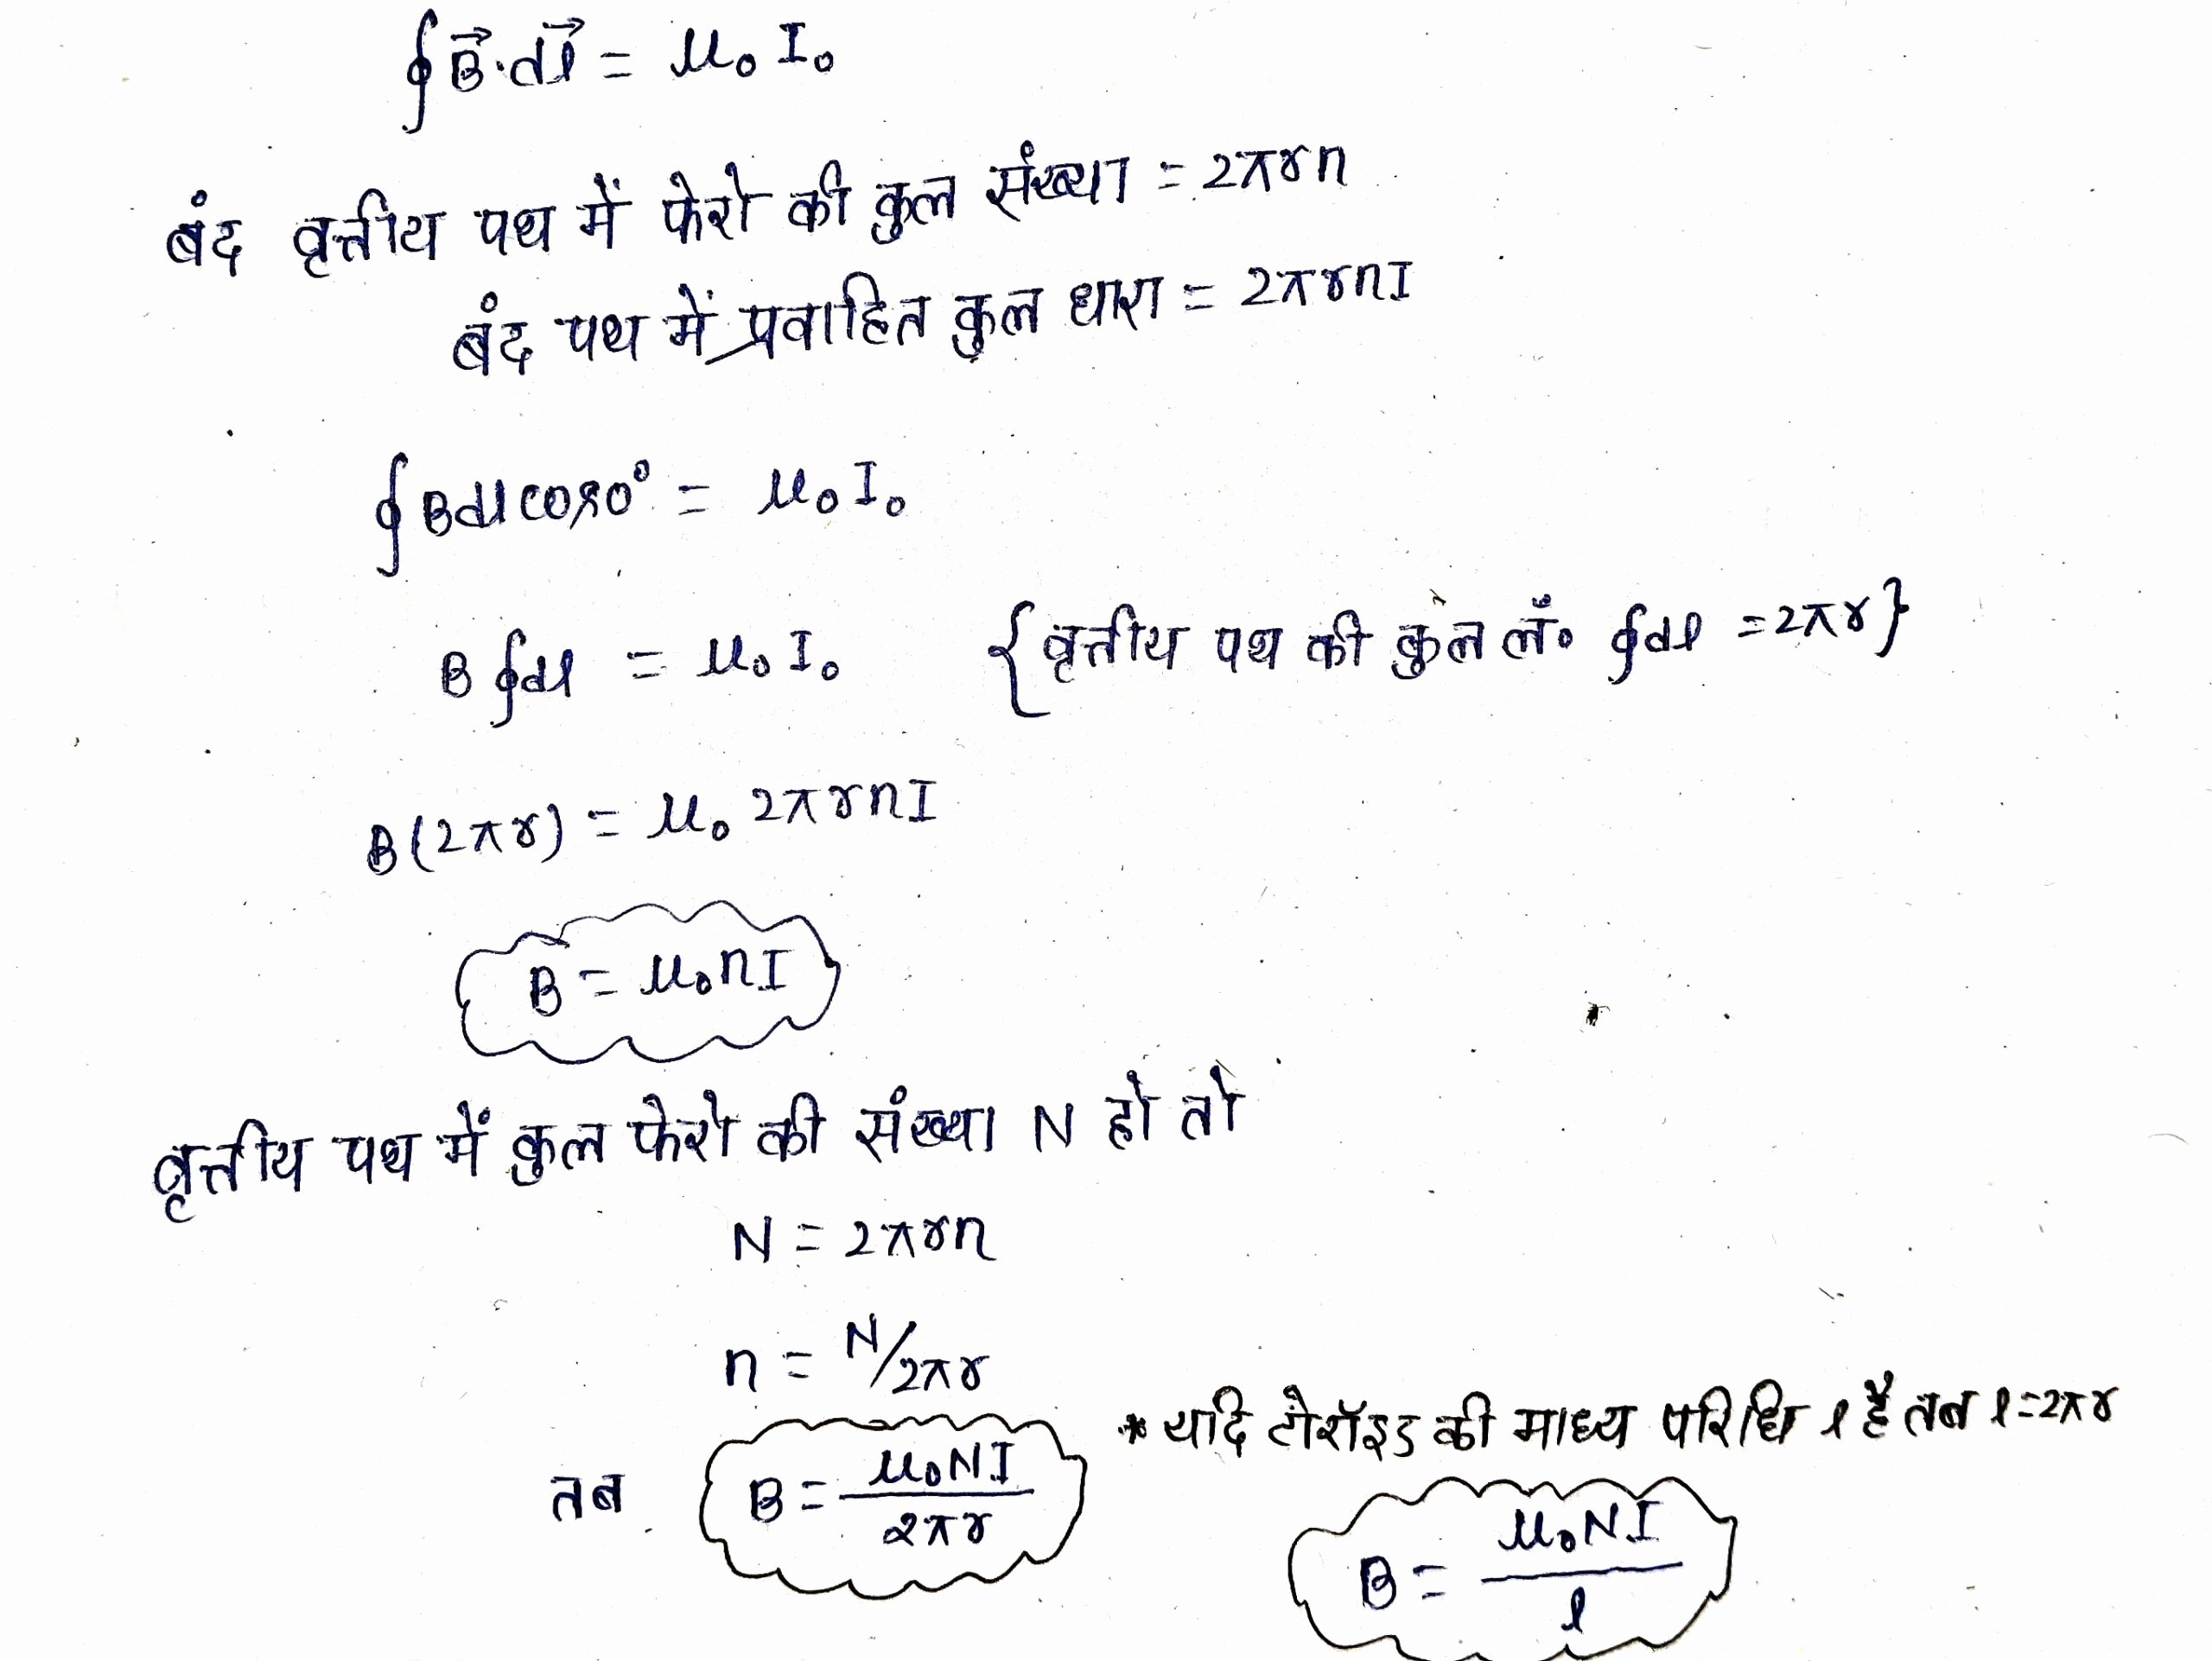 ∮B⃗·dl⃗ = μ₀I₀
बंद वृत्तीय पथ में फेरो की कुल संख्या = 2πrn
बंद पथ में प्रवाहित कुल धारा = 2πrnI
∮Bdlcos0° = μ₀I₀
B∮dl = μ₀I₀ {वृत्तीय पथ की कुल लॅं० ∮dl = 2πr}
B(2πr) = μ₀2πrnI
B = μ₀nI
वृत्तीय पथ में कुल फेरो की संख्या N हो तो
N = 2πrn
n = N/2πr
* यदि टोरॉइड की माध्य परिधि l है तब l=2πr
तब B = μ₀NI/2πr
B = μ₀NI/l